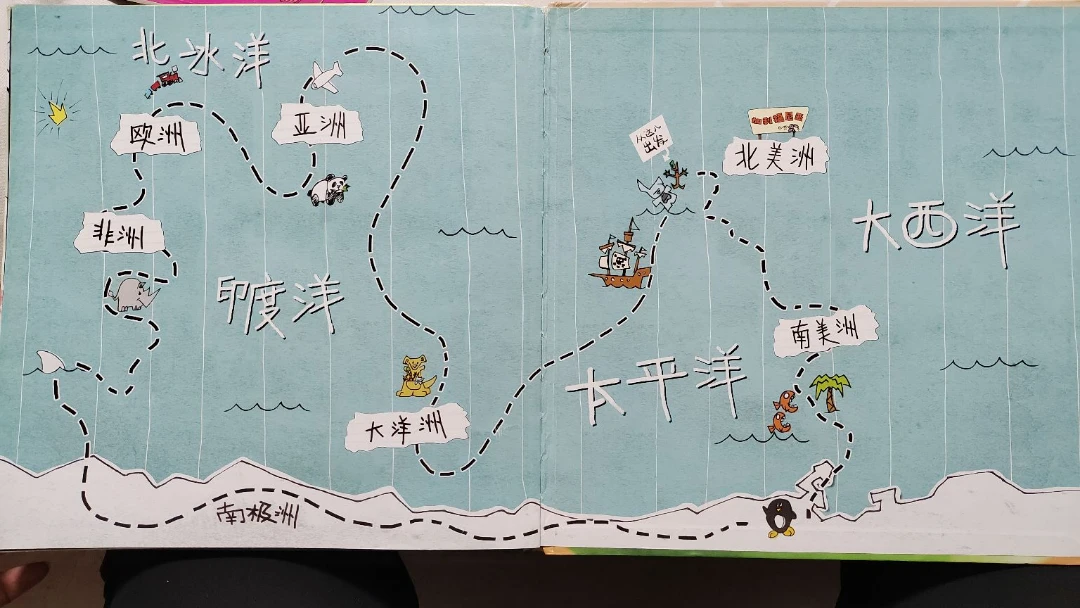 北冰洋
欧洲
亚洲
非洲
印度洋
大洋洲
南极洲
从这儿
出发
北美洲
大西洋
南美洲
太平洋